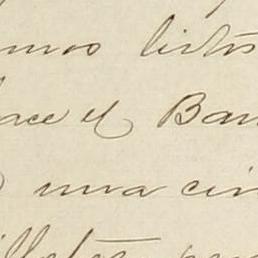 mos listos
ace el Ban
una cir
illetes